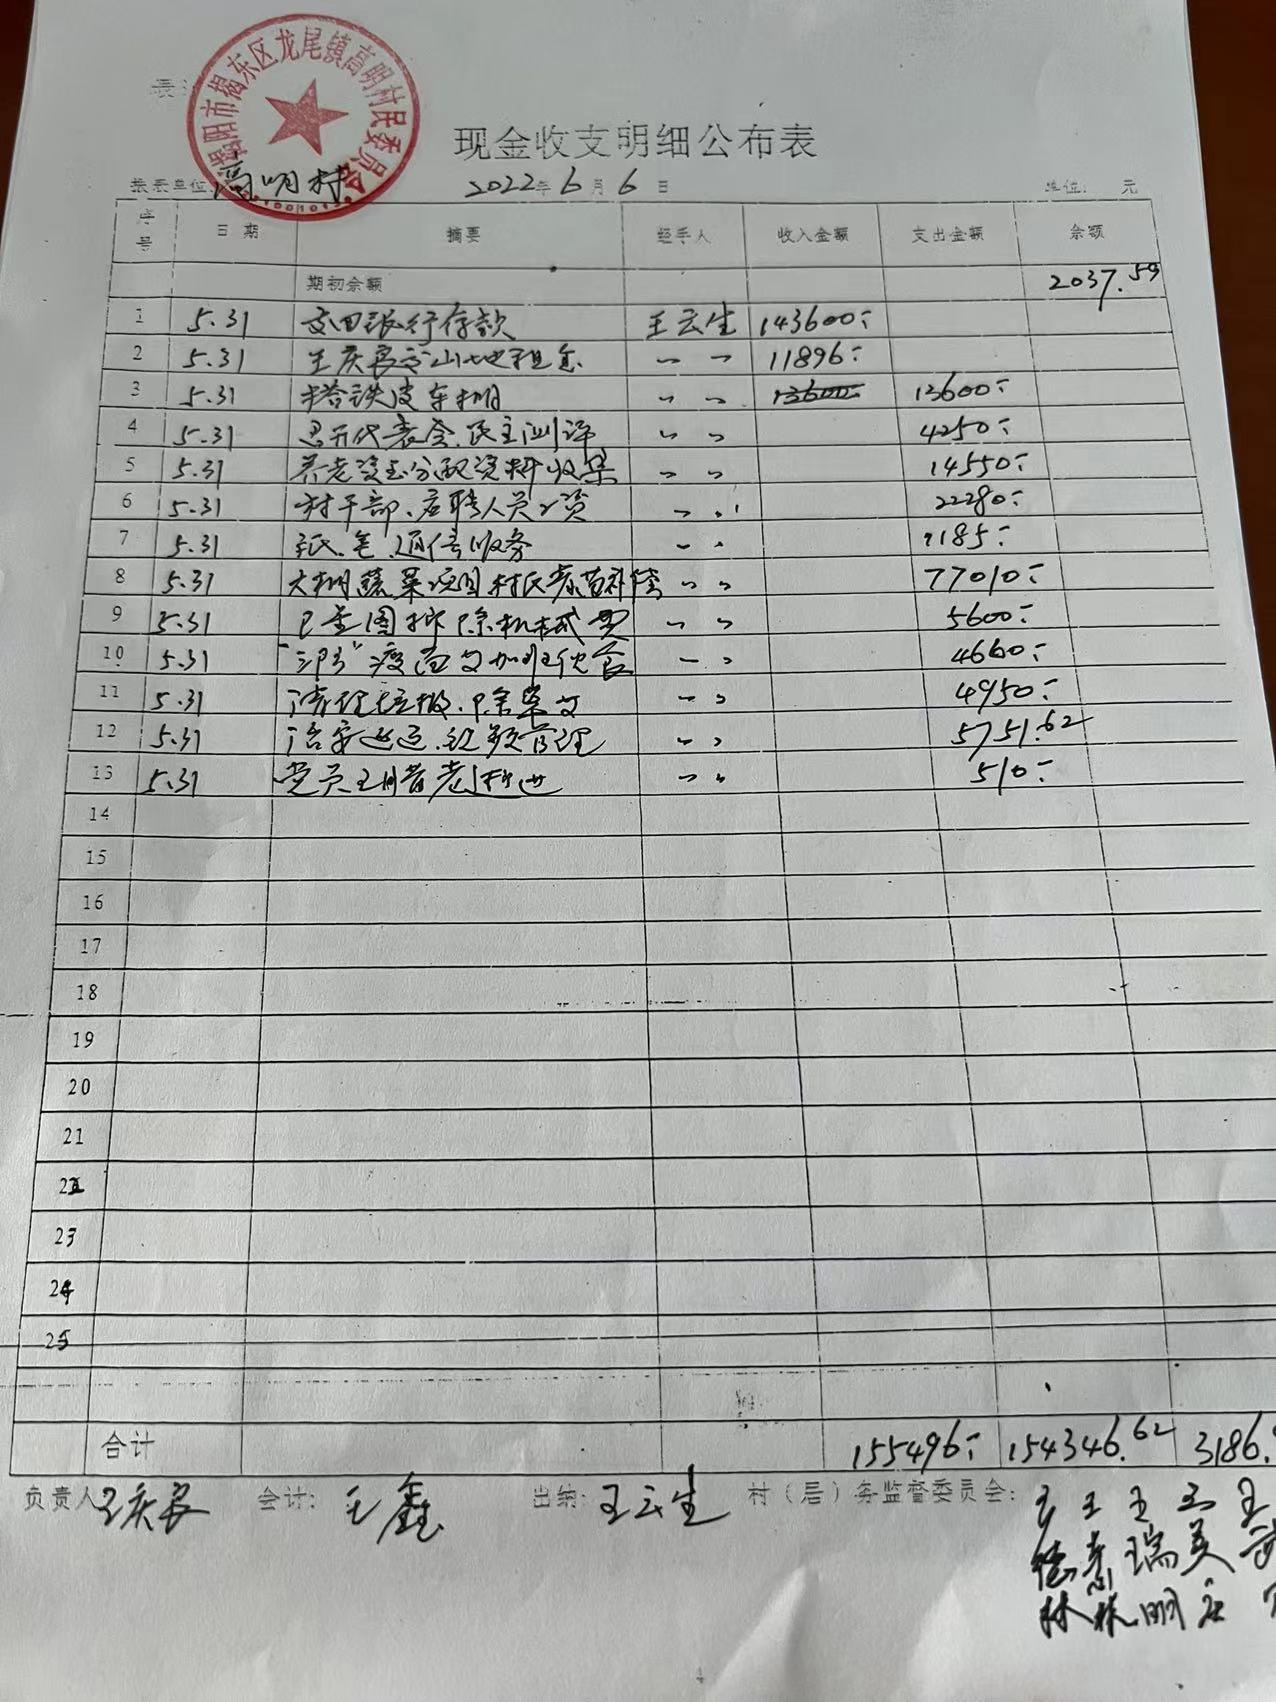 揭阳市揭东区龙尾镇高明村民委员会
现金收支明细公布表
报表单位 高明村 2022年6月6日 单位: 元
序号 日期 摘要 经手人 收入金额 支出金额 余额
期初余额 2037.59
1 5.31 支田银行存款 王云生 143600:
2 5.31 王庆良交山地租息 〃 〃 11896:
3 5.31 搭铁皮车棚 〃 〃 13600: 13600:
4 5.31 召开代表会、民主测评 〃 〃 4250:
5 5.31 养老资金分配资料收集 〃 〃 14550:
6 5.31 村干部、后聘人员工资 〃 〃 22280:
7 5.31 纸、笔、通信服务 〃 〃 1185:
8 5.31 大棚蔬菜项目村民青苗补偿 〃 〃 77010:
9 5.31 排除机械费 〃 〃 5600:
10 5.31 疫苗支加班伙食 〃 〃 4660:
11 5.31 清理垃圾、除草支 〃 〃 4950:
12 5.31 治安巡逻、管理 〃 〃 5751.62
13 5.31 党员 〃 〃 510:
14
15
16
17
18
19
20
21
22
23
24
25
合计 155496: 154346.62 3186.
负责人 王庆良 会计: 王鑫 出纳: 王云生 村(居)务监督委员会: 王 王 王 王
德 惠 瑞 美 武
林 林 明 宏